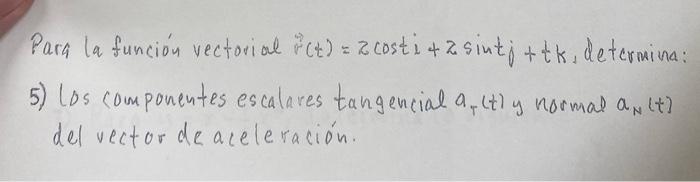 Para la función vectorial r⃗(t) = 2 cost i + 2 sint j + t k, determina:
5) Los componentes escalares tangencial a_T(t) y normal a_N(t)
del vector de aceleración.